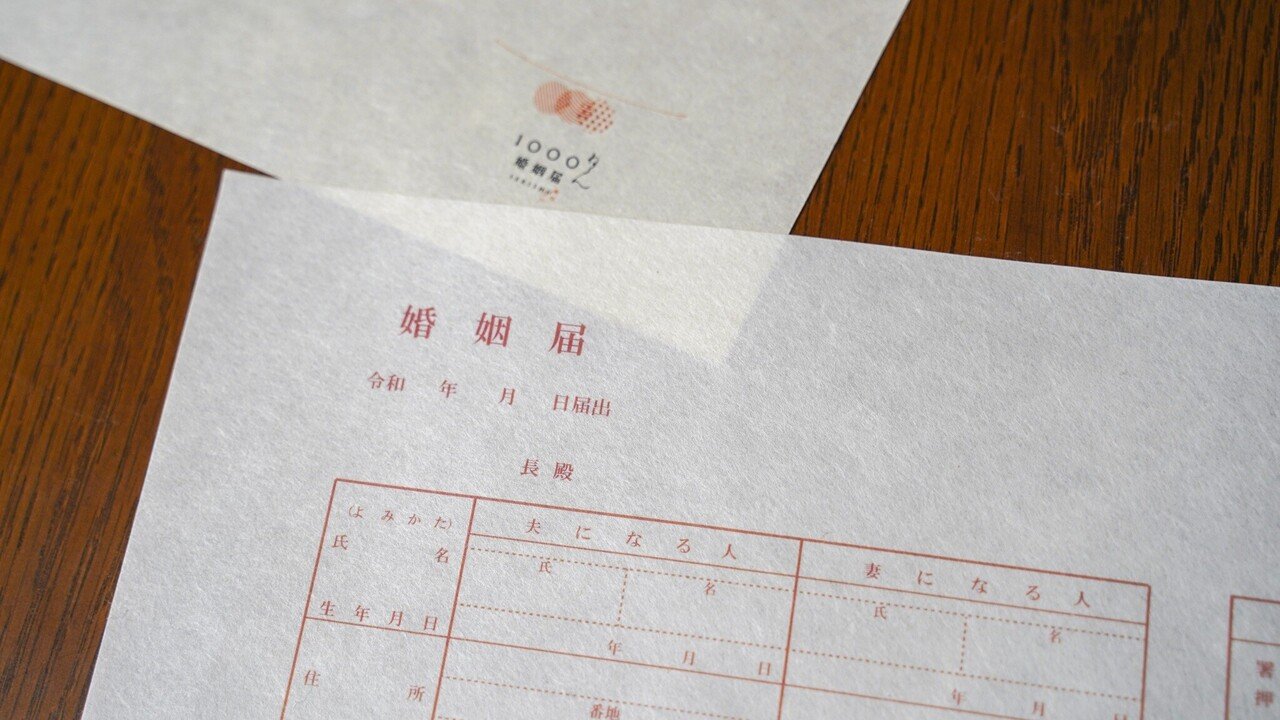 1000年
婚姻届
婚姻届
令和 年 月 日届出
長 殿
(よみかた) 夫になる人 妻になる人
氏 名 氏 名 氏 名
生年月日 年 月 日 年 月 日
住 所 番地
署
押